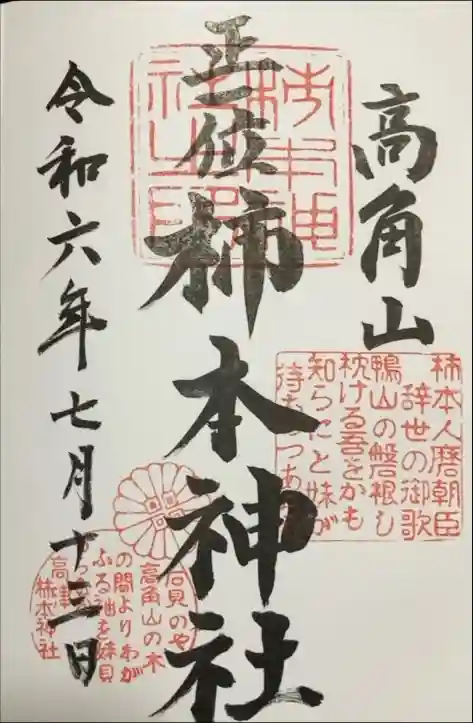 高角山
柿本人麿朝臣
辞世の御歌
鴨山の磐根し
枕ける吾をかも
知らにと妹が
待ちつつあ
正一位
柿本神社
柿本神
社之印
石見のや
高角山の木
の間よりわが
ふる袖を妹見
高津
柿本神社
令和六年七月十三日